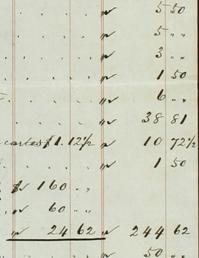 . . . . " 5 50
. . . . " 5 " "
. . . . " 3 " "
. . . . " 1 50
. . . . " 6 " "
. . . . " 38 81
1.12½ " 10 72½
. . . . " 1 50
" 160 " "
" 60 " "
" 24 62 " 244 62
" 50 " "